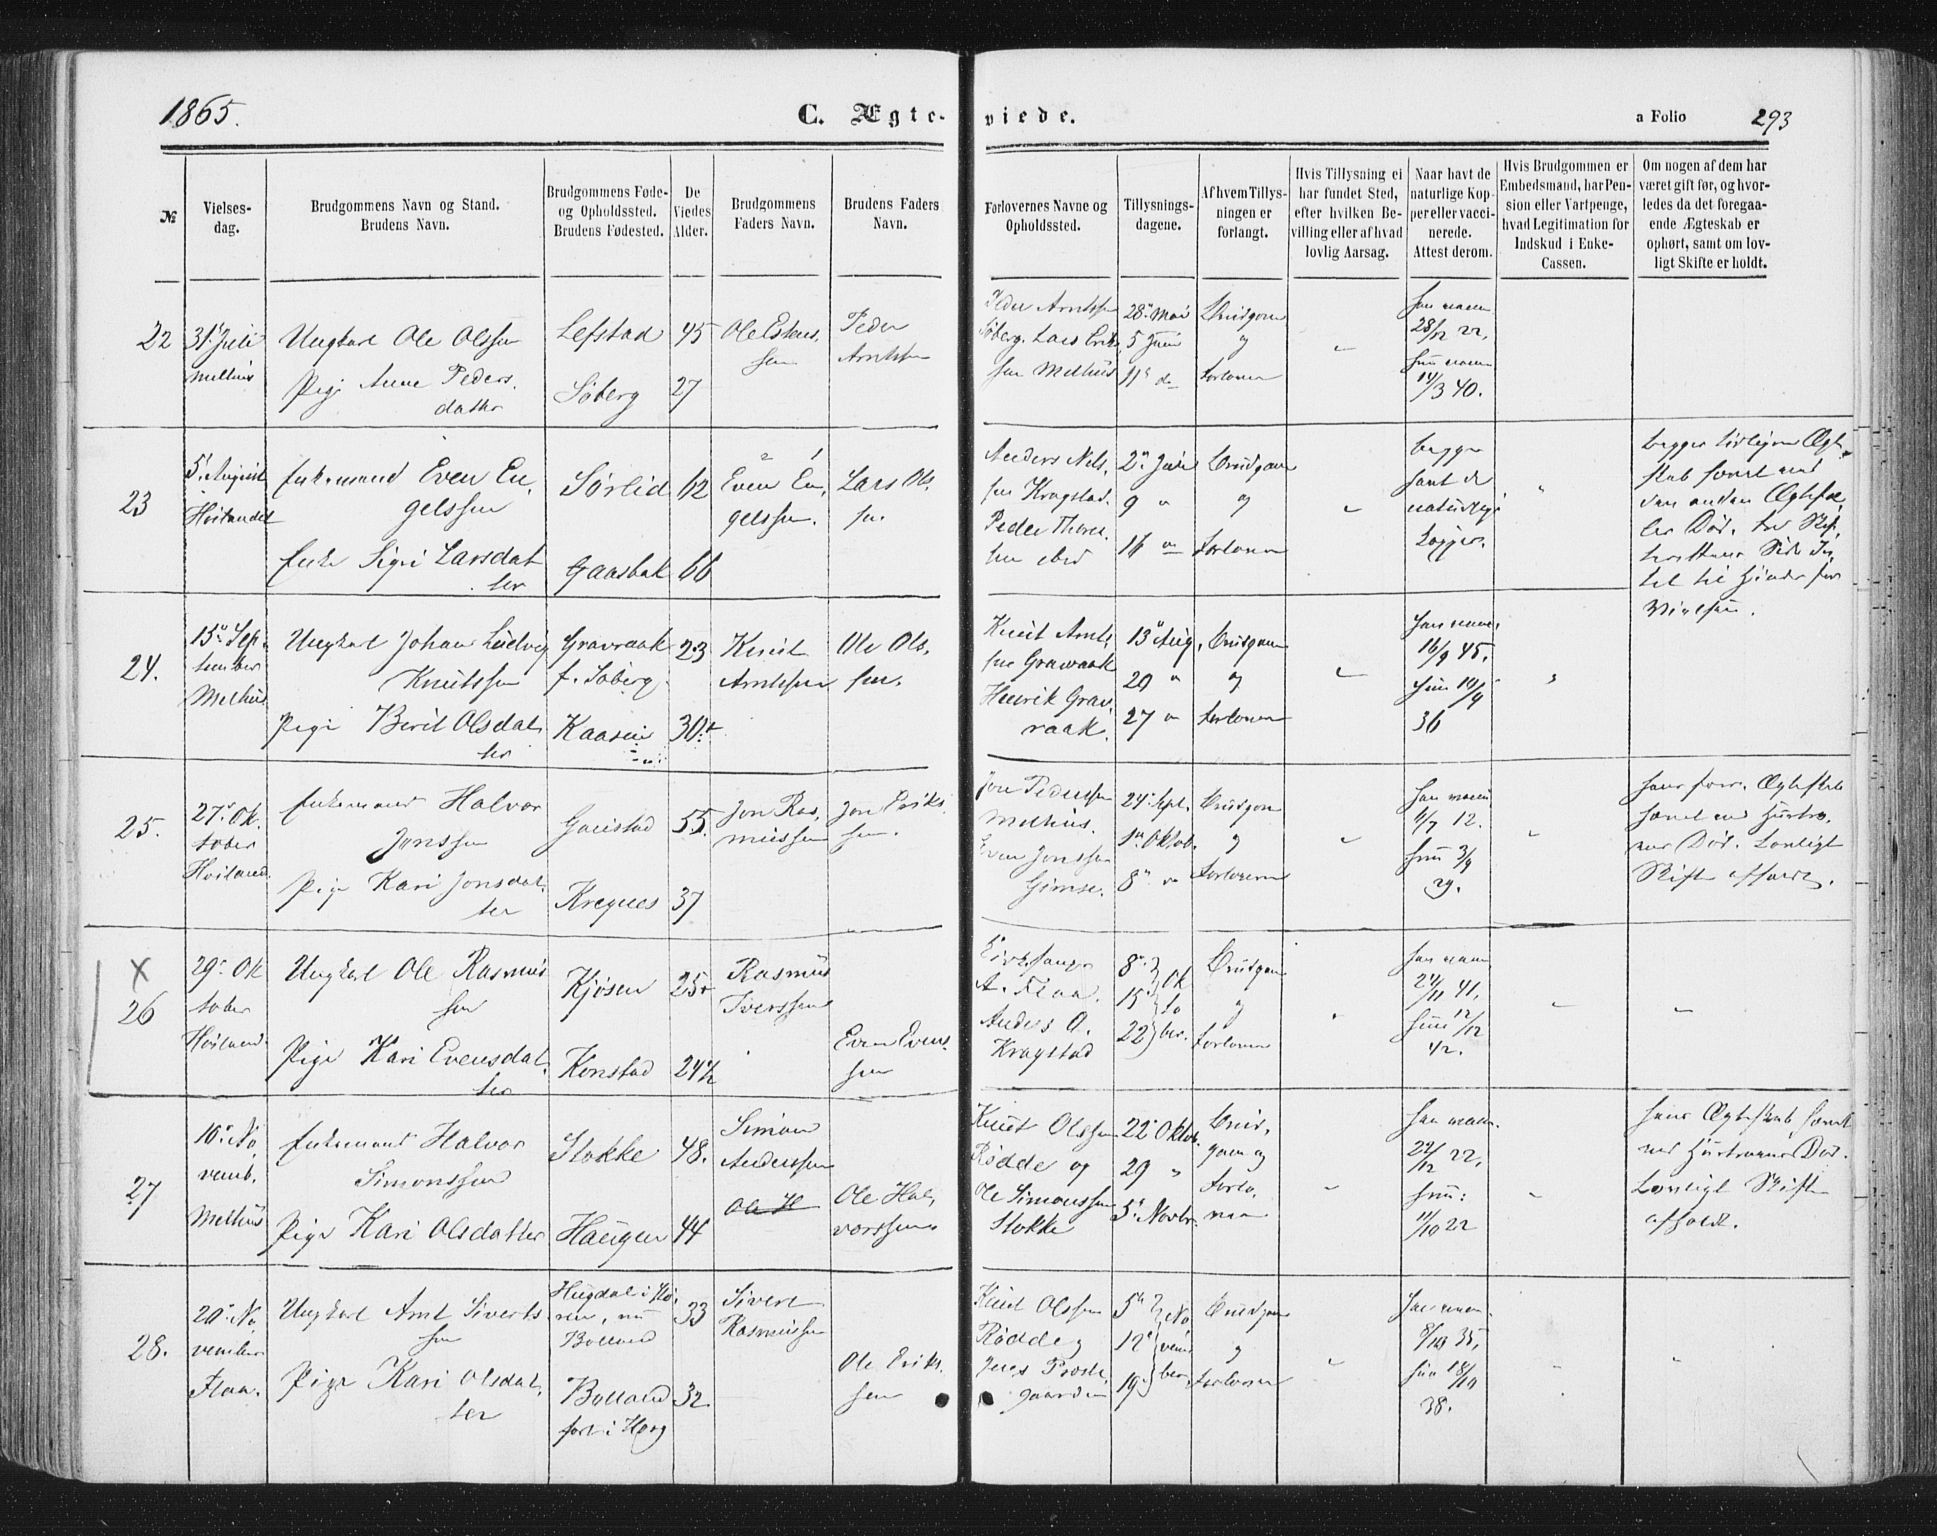 1865.
C. Ægte-
viede.
a Folio
293
№
Vielses-
dag.
Brudgommens Navn og Stand.
Brudens Navn.
Brudgommens Føde-
og Opholdssted.
Brudens Fødested.
De
Viedes
Alder.
Brudgommens
Faders Navn.
Brudens Faders
Navn.
Forlovernes Navne og
Opholdssted.
Tillysnings-
dagene.
Af hvem Tillys-
ningen er
forlangt.
Hvis Tillysning ei
har fundet Sted,
efter hvilken Be-
villing eller af hvad
lovlig Aarsag.
Naar havt de
naturlige Kop-
per eller vacci-
nerede.
Attest derom.
Hvis Brudgommen er
Embedsmand, har Pen-
sion eller Vartpenge,
hvad Legitimation for
Indskud i Enke-
Cassen.
Om nogen af dem har
været gift før, og hvor-
ledes da det foregaa-
ende Ægteskab er
ophørt, samt om lov-
ligt Skifte er holdt.
22
31' Juli
Melhus
Ungkarl Ole Olssen
Pige Anne Peders.
datter
Lefstad
Søberg
45
27
Ole
sen
Peder
Arntsen
Peder Arntssen
Søberg. Lars Erik
sen Melhus
28. Mai
5 Juni
11
Brudgom
og
Forlover
28/12 22.
14/3 40.
23
5' August
Høilandet
Enkemand Even En,
gelssen
Enke Sigri Larsdat
ter
Sørlid
Gaasbak
62
66
Even En,
gelssen.
Lars Ols,
sen.
Anders Nels,
sen Kragstad.
Peder Thore,
2. Juli
9 "
16
Brudgom
og
Forlover
begge
havt de
naturlige
Kopper.
24.
15. Sep.
tember
Melhus
Ungkarl Johan Ludvig
Knutssen
Pige Berit Olsdat,
ter
Gravraak
f. Søberg.
23
Knut
Arntssen
Ole Ols,
sen.
Knut Arnts,
sen Gravraak
Henrik Grav,
raak.
13 Aug.
20 "
27 "
Brudgom
og
Forlover
16/9 45.
36
25.
27. Ok.
tober
Høiland.
Enkemand Halvor
Jonssen
Pige Kari Jonsdat,
ter
55.
37
Jon Ras,
mussen
Jon Eriks
sen.
Jon Pederssen
Melhus.
Even Jonssen
Gimse.
24. Sept.
1. Oktob.
8.
Brudgom
og
Forloveren
11/7 12.
3/9
29.
hans forr. Ægteskab
hævet ved Hustru,
ens Død. Lovligt
Skifte afholdt.
X
26
29. Ok
tober
Høiland.
Ungkarl Ole Rasmus
sen
Pige Kari Evensdat,
ter
Kjøsen
Konstad
25
24½
Rasmus
Iverssen
Even Evens,
sen
A. Flaa.
Anders O.
Kragstad
8.
15.
22
Ok
to
ber.
Brudgom
og
Forlover
41.
12/12
42.
27
10. No
vemb.
Melhus
Enkemand Halvor
Simonssen
Pige Kari Olsdatter
Stokke
Haugen
48.
44
Simon
Anderssen
Ole H
Ole Hal,
vorssen
Knut Olssen
Rødde og
Ole Simonssen
Stokke
22. Oktob.
29 "
5. Novbr.
Brud,
gom og
Forlo,
22/12 22.
11/10 22
hans Ægteskab hævet
ved Hustruens Død.
Lovligt Skifte
afholdt.
28.
20. No
vember
Flaa.
Ungkarl Arnt Siverts
sen
Pige Kari Olsdat,
ter
Hugdal i Stø
ren, nu
Bolland
Bolland
født i Horg
33
32
Sivert
Rasmussen
Ole Eriks.
sen
Knut Olssen
Rødde og
Jens Preste,
gaarden
5.
12.
19.
No
vem
ber.
Brudgom
og
Forlover
8/10 35,
18/10
38.